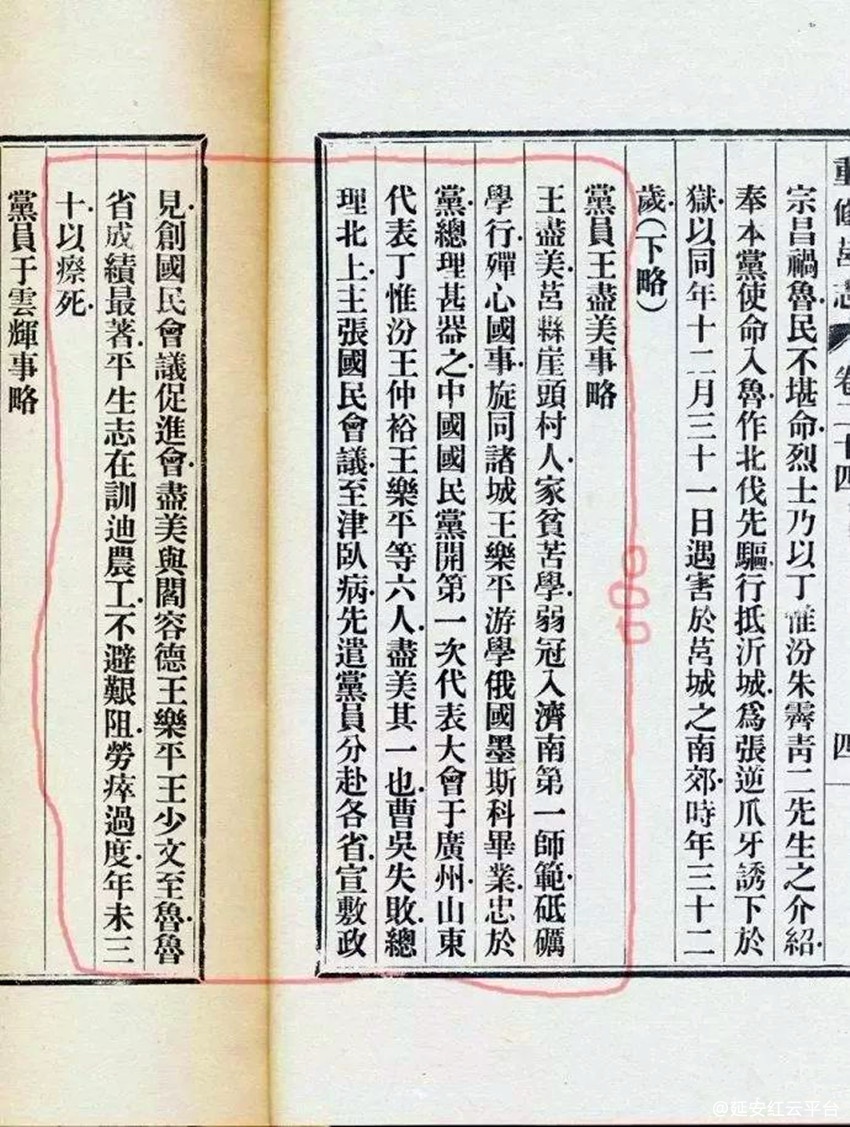 重修莒志 卷二十四 四
宗昌禍魯民不堪命烈士乃以丁惟汾朱霽青二先生之介紹
奉本黨使命入魯作北伐先驅行抵沂城爲張逆爪牙誘下於
獄以同年十二月三十一日遇害於莒城之南郊時年三十二
歲(下略)
黨員王盡美事略
王盡美莒縣崖頭村人家貧苦學弱冠入濟南第一師範砥礪
學行殫心國事旋同諸城王樂平游學俄國墨斯科畢業忠於
黨總理甚器之中國國民黨開第一次代表大會于廣州山東
代表丁惟汾王仲裕王樂平等六人盡美其一也曹吳失敗總
理北上主張國民會議至津臥病先遣黨員分赴各省宣敷政
見創國民會議促進會盡美與閻容德王樂平王少文至魯魯
省成績最著平生志在訓迪農工不避艱阻勞瘁過度年未三
十以瘵死
黨員于雲輝事略
@延安红云平台